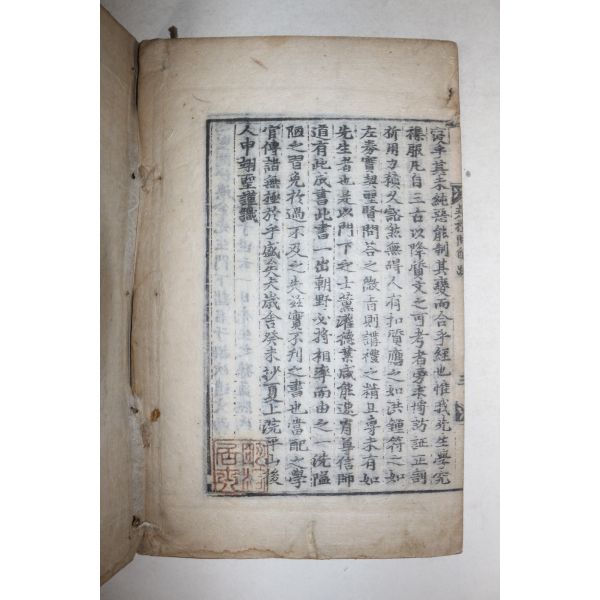 定乎其未純惡能制其變而合乎經也惟我先生學究
禮服凡自三古以降質文之可考者旁求博訪証正剖
析用力積久谿然無碍人有扣質應之如洪鍾符之如
左券實與聖賢問答之微旨則講禮之精且專未有如
先生者也是以門下之士薰濯德業咸能遵尊信師
道有此底書此書一出朝野必將相率而由之一洗隘
陋之習免於過不及之失玆實不刊之書也當配之學
官傳諸無極於乎盛矣夫歲舍癸未抄夏上院平山後
人申翊聖謹識
三